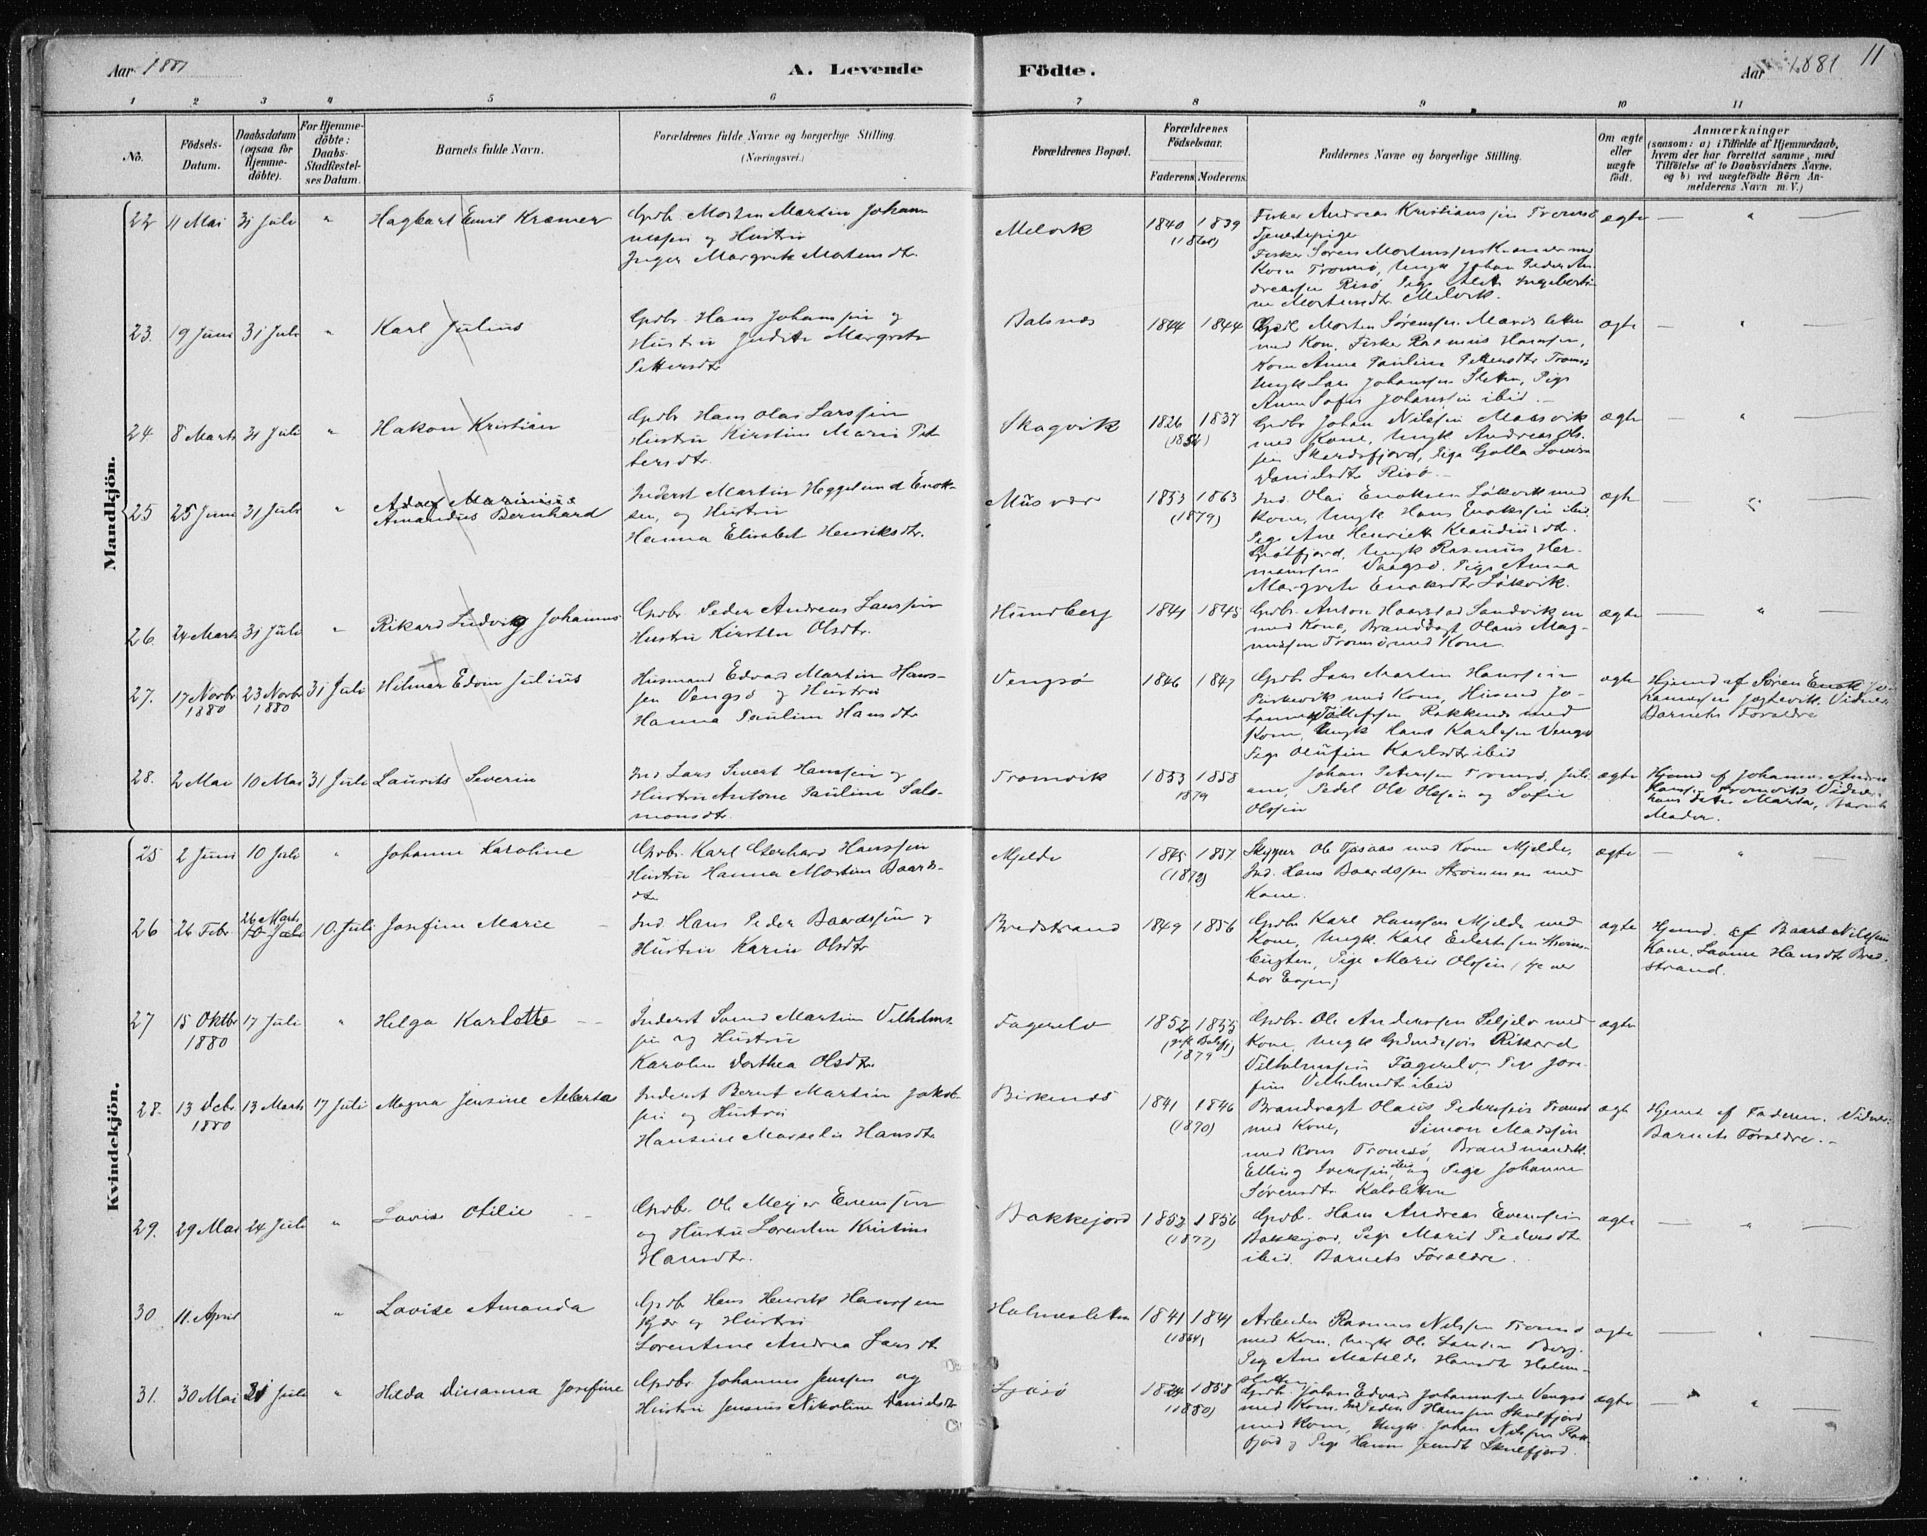 Aar 1881 A. Levende Födte. Aar 1881 11
1 2 3 4 5 6 7 8 9 10 11
No. Födsels-Datum. Daabsdatum (ogsaa for Hjemme-döbte). For Hjemme-döbte: Daabs-Stadfæstel-ses Datum. Barnets fulde Navn. Forældrenes fulde Navne og borgerlige Stilling. (Næringsvei.) Forældrenes Bopæl. Forældrenes Födselsaar. Faderens. Moderens. Faddernes Navne og borgerlige Stilling. Om ægte eller uægte födt. Anmærkninger (saasom: a) i Tilfælde af Hjemmedaab, hvem der har forrettet samme, med Tilföielse af to Daabsvidners Navne, og b) ved uægtefödte Börn An-melderens Navn m. V.)
Mandkjön.
22 11 Mai 31 Juli " Hagbart Emil Kræmer
Gpdbr. Morten Martin Johan
nesen og Hustru
Inger Margrete Mortensdtr.
Melvik 1840 1839
Fisker Andreas Kristiansen Tromsø
Tjenestepige
Fisker Søren Mortensen Kræmer med
Kone Tromsø, Ungk Johan Peder An-
dreassen Risø Pige Ingeberti-
ne Mortensdtr Melvik.
ægte — " —
23. 19 Juni 31 Juli " Karl Julius
Gpdbr. Hans Johansen og
Hustru Judith Margrete
Pettersdtr
Balsnes 1844 1844
Gpdbr Morten Sørensen
med Kone, Fisker Rasmus Hansen,
Kone Anna Pauline Pettersdtr Tromsø
Ungk Lars Johansen Sletten, Pige
Anne Sofie Johansen ibid.
ægte — " —
24 8 Marts 31 Juli " Hakon Kristian
Gpdbr Hans Olai Larssen
Hustru Kirstine Marie Pet
tersdtr.
Skagvik 1826 1837
(1854)
Gpdbr Johan Nilssen Maasvik
med Kone, Ungk Andreas Ols-
sen Skardsfjord, Pige Golla Lovise
Danielsdtr Risø
ægte — " —
25 25 Juni 31 Juli " Adolf Marinius
Amandus Bernhard
Inderst Martin Heggelund Enok-
sen, og Hustru
Hanna Elisabet Henriksdtr.
Musvær 1853 1863
(1879)
Ind. Olai Enoksen Løkvik med
Kone, Ungk Hans Enokssen ibid
Pige Ane Henriette Klaudiusdtr.
Grøtfjord, Ungk Rasmus Her-
mansen Vaagsø, Pige Anna
Margrete Enoksdtr Løkvik.
ægte "
26. 24 Marts 31 Juli " Rikard Ludvig Johannes
Gpdbr Peder Andreas Larssen
Hustru Kirsten Olsdtr.
Hundberg 1841 1845
Gpdbr. Anton Haarstad Sandviken
med Kone, Brandvagt Olaus Mag-
nussen Tromsø med Kone.
ægte — " —
27. 17 Novbr 1880 23 Novbr 1880 31 Juli Hilmar Edom Julius
Husmand Edvard Martin Hans-
sen Vengsø og Hustru
Hanna Pauline Hansdtr
Vengsø 1846 1847
Gpdbr Lars Martin Hanssen
med Kone, Husmd Jo-
hannes Rakkenes med
Kone, Ungk Hans Karlsen Vengsø
Pige Olufine Karlsdtr ibid
ægte Hjemd af Søren Enok Jo-
hannessen Vidner:
Barnets Forældre
28. 2 Mai 10 Mai 31 Juli Laurits Severin
Ind Lars Sivert Hanssen og
Hustru Antone Pauline Salo-
monsdtr.
Tromvik 1853 1858
1879
Johan Petersen Tromsø, Juli
ane, Pedel Ole Olssen og Sofie
Olssen
ægte Hjemd af Johannes Andre
Hansen Tromvik Vidner:
hans Marta, Barnets
Moder.
Kvindekjön.
25 2 Juni 10 Juli " Johanne Karoline
Gpdbr. Karl Gerhard Hanssen
Hustru Hanna Mortine Baards-
dtr
Mjelde 1845 1857
(1872)
Skipper Ole Tjosaas med Kone Mjelde,
Ind. Hans Baardssen Strømmen med
Kone.
ægte — " —
26 26 Febr 26 Marts 10 Juli 10 Juli Josefine Marie
Ind Hans Peder Baardssen og
Hustru Karin Olsdtr
Bredstrand 1849 1856
Gpdbr Karl Hanssen Mjelde med
Kone, Ungk. Karl Eilertsen Strøms-
bugten, Pige Marie Olssen
ægte Hjemd. af Baard Nilssen
Kone Lovise Hansdtr Bred-
strand.
27 15 Oktbr 1880 17 Juli " Helga Karlotte
Inderst Svend Martin Vilhelms
sen og Hustru
Karolen Dorthea Olsdtr
Fagerelv 1852 1855
1879
Gpdbr. Ole Anderssen Seljelv med
Kone, Ungk Rikard
Vilhelmssen Fagerelv, Pige Jose-
fine Vilhelmsdtr ibid
ægte
28. 13 Debr 1880 13 Marts 17 Juli Magna Jensine Alberta
Inderst Bernt Martin Jakob-
sen og Hustru
Hansine Marselie Hansdtr
Birkenes 1841 1846
(1870)
Brandvagt Olaus Pederssen Tromsø
med Kone, Simon Madssen
med Kone Tromsø, Brandmand
Elling Iverssen ibid og Pige Johanne
Sørensdtr Kalsletten
ægte Hjemd af Faderen. Vidner:
Barnets Forældre.
29. 29 Mai 24 Juli " Lovise Otilie
Gpdbr. Ole Meyer Evenssen
og Hustru Lorentine Kristine
Hansdtr.
Bakkejord 1852 1856
(1877)
Gpdbr. Hans Andreas Evenssen
Bakkejord, Pige Marit Pedersdtr
ibid. Barnets Forældre.
ægte — " —
30 11 April " Lovise Amanda
Gpdbr Hans Henrik Hanssen
Kjær og Hustru
Lorentine Andrea Larsdtr
Holmesletten 1841 1841
(1864)
Arbeider Rasmus Nilssen Tromsø
med Kone, Ungk Ole Larssen Berg,
Pige Ane Matilde Hansdtr Holme-
sletten
ægte — " —
31. 30 Mai 31 Juli " Hilda Dinanna Josefine
Gpdbr Johannes Jenssen og
Hustru Jensine Nikoline Danielsdtr
Sjøsø 1854 1858
(1880)
Gpdbr. Johan Edvard Johannessen Vengsø
med Kone, Ind Peder Hanssen Skulsfjord
med Kone, Ungk. Johan Nilssen Rak-
fjord og Pige Hanna Jensdtr Skulsfjord.
ægte " —